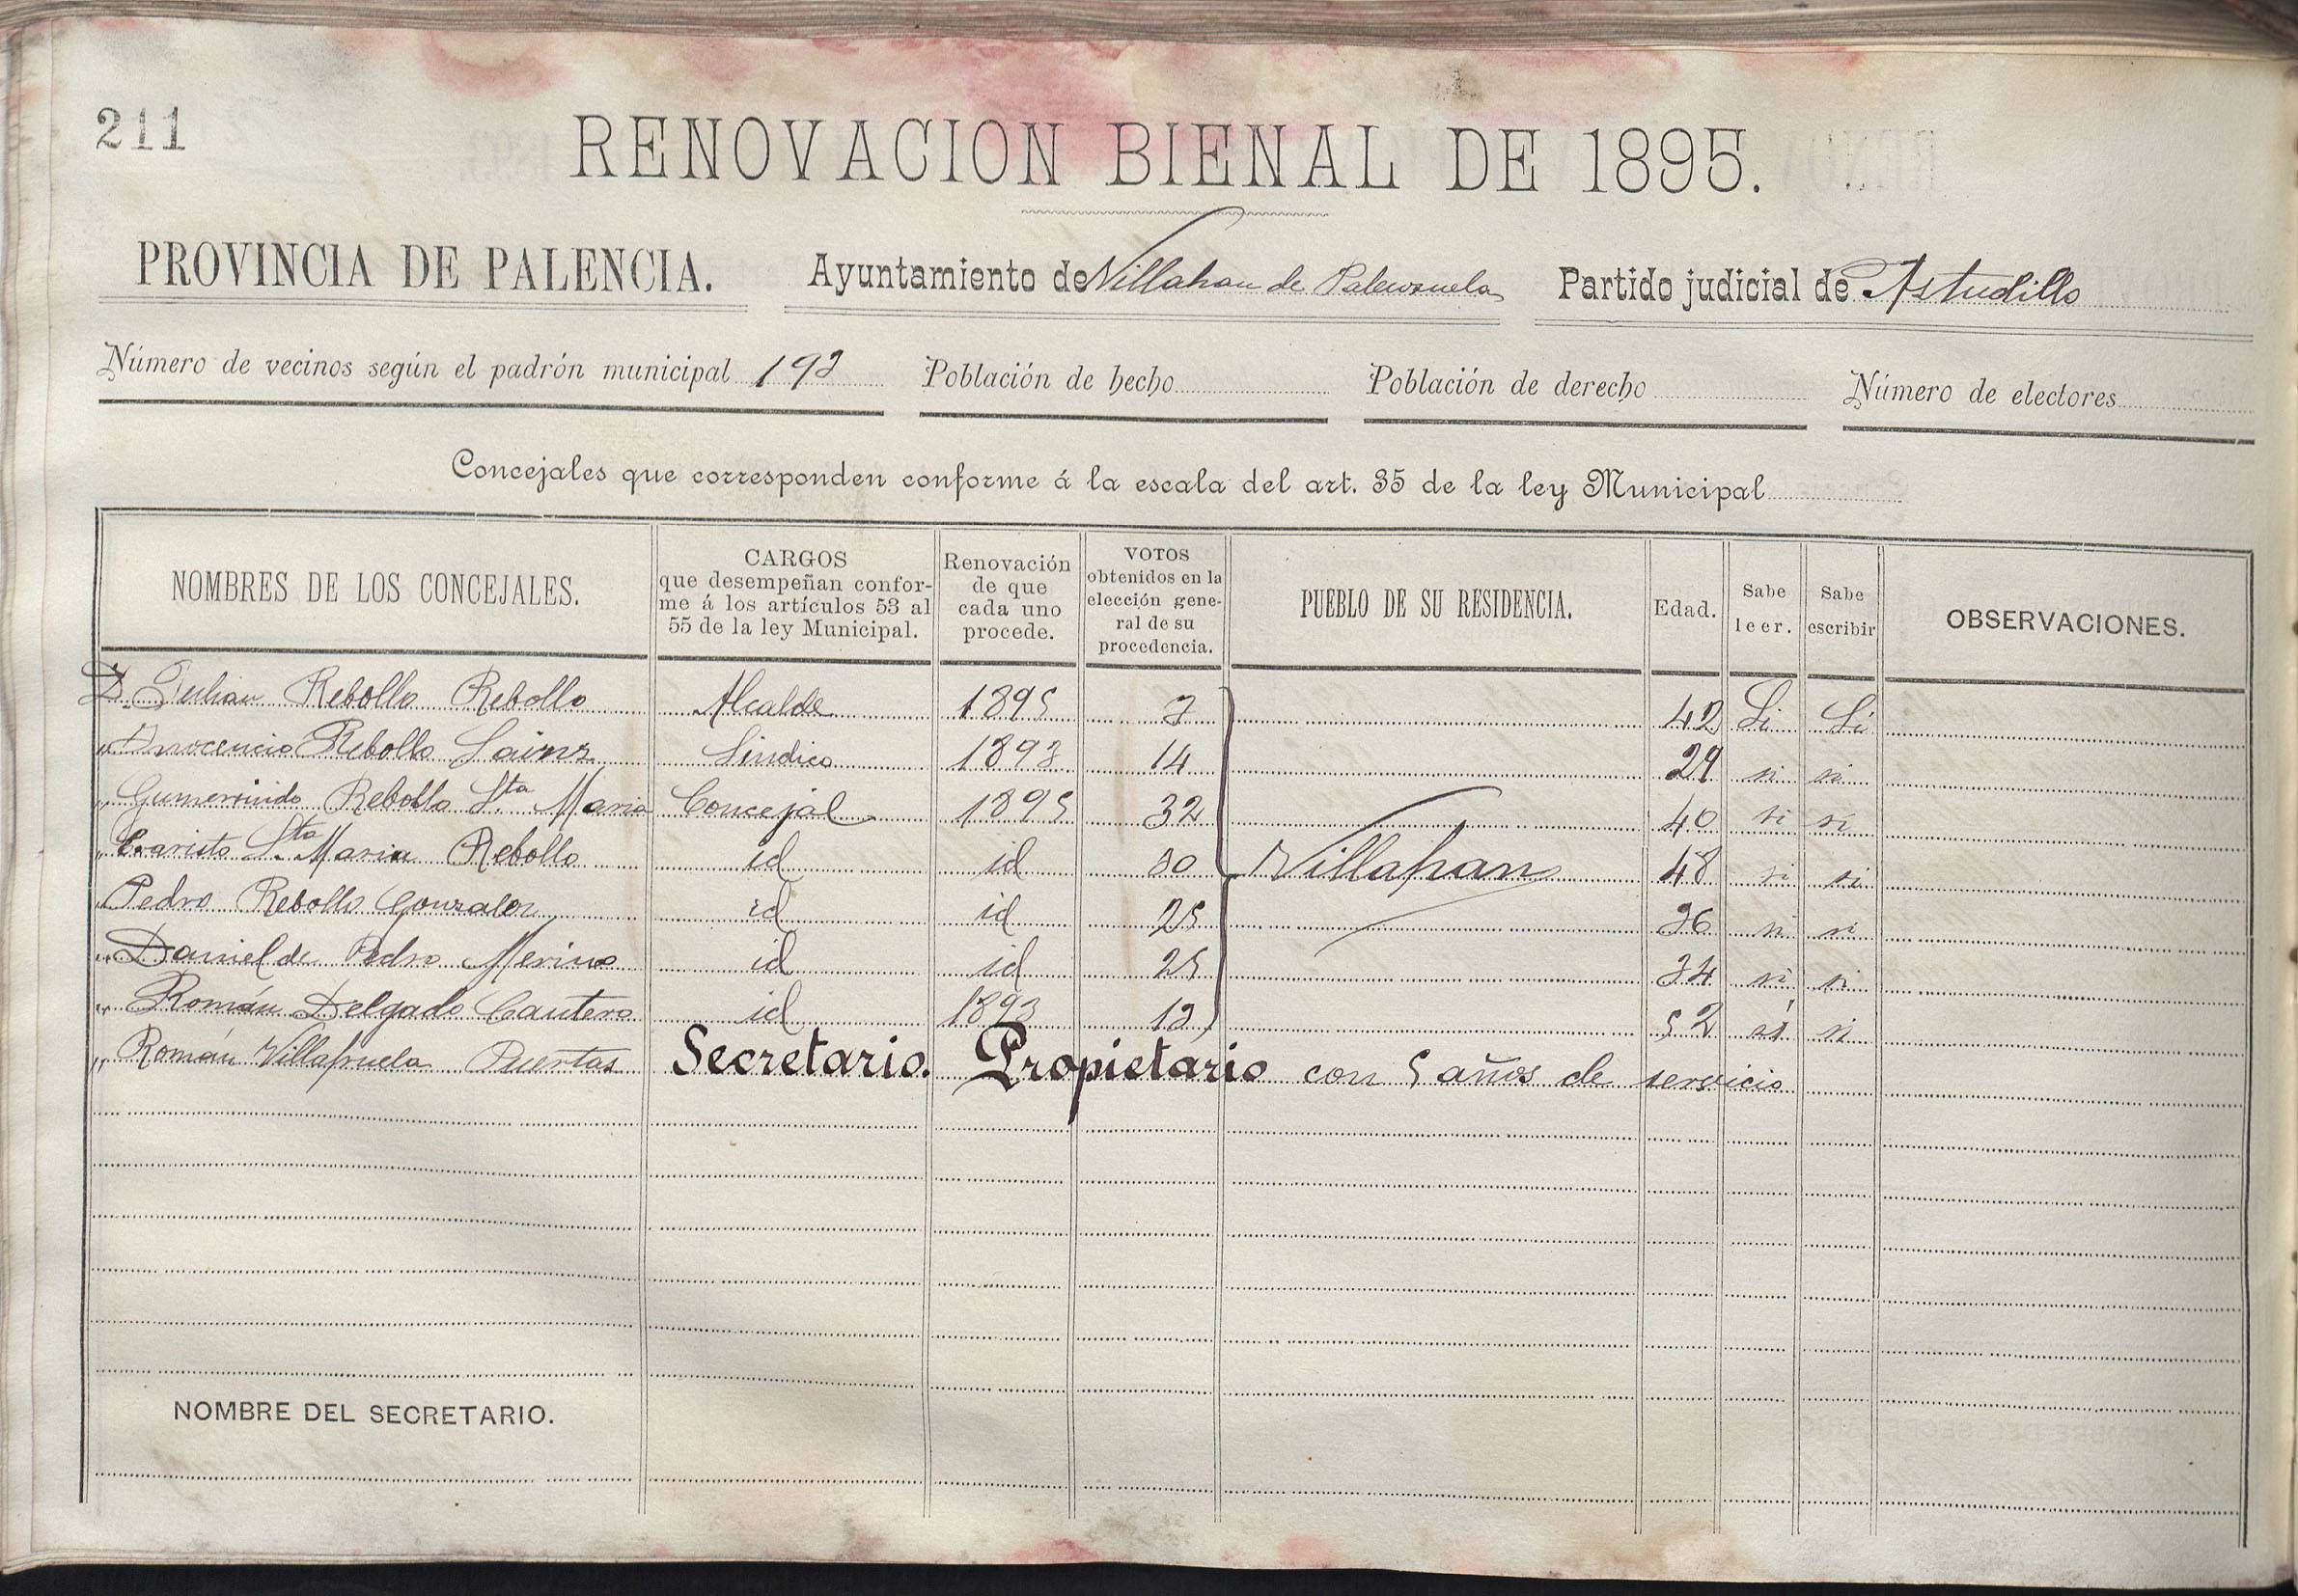 211
RENOVACION BIENAL DE 1895.
PROVINCIA DE PALENCIA. Ayuntamiento de Villahan de Palenzuela Partido judicial de Astudillo
Número de vecinos según el padrón municipal 193 Población de hecho Población de derecho Número de electores
Concejales que corresponden conforme á la escala del art. 35 de la ley Municipal
NOMBRES DE LOS CONCEJALES.
CARGOS
que desempeñan confor-
me á los artículos 53 al
55 de la ley Municipal.
Renovación
de que
cada uno
procede.
VOTOS
obtenidos en la
elección gene-
ral de su
procedencia.
PUEBLO DE SU RESIDENCIA.
Edad.
Sabe
leer.
Sabe
escribir
OBSERVACIONES.
D. Julian Rebollo Rebollo Alcalde 1895 42 Si Si
" Inocencio Rebollo Sainz Sindico 1893 14 29 si si
" Gumersindo Rebollo Sta Maria Concejal 1895 32 40 si si
" Evaristo Sta Maria Rebollo id id 30 Villahan 48 si si
" Pedro Rebollo Gonzalez id id 25 36 si si
" Daniel de Pedro Merino id id 25 34 si si
" Román Delgado Cantero id 1893 13 52 sí si
" Román Villafruela Puertas Secretario. Propietario con 5 años de servicio
NOMBRE DEL SECRETARIO.